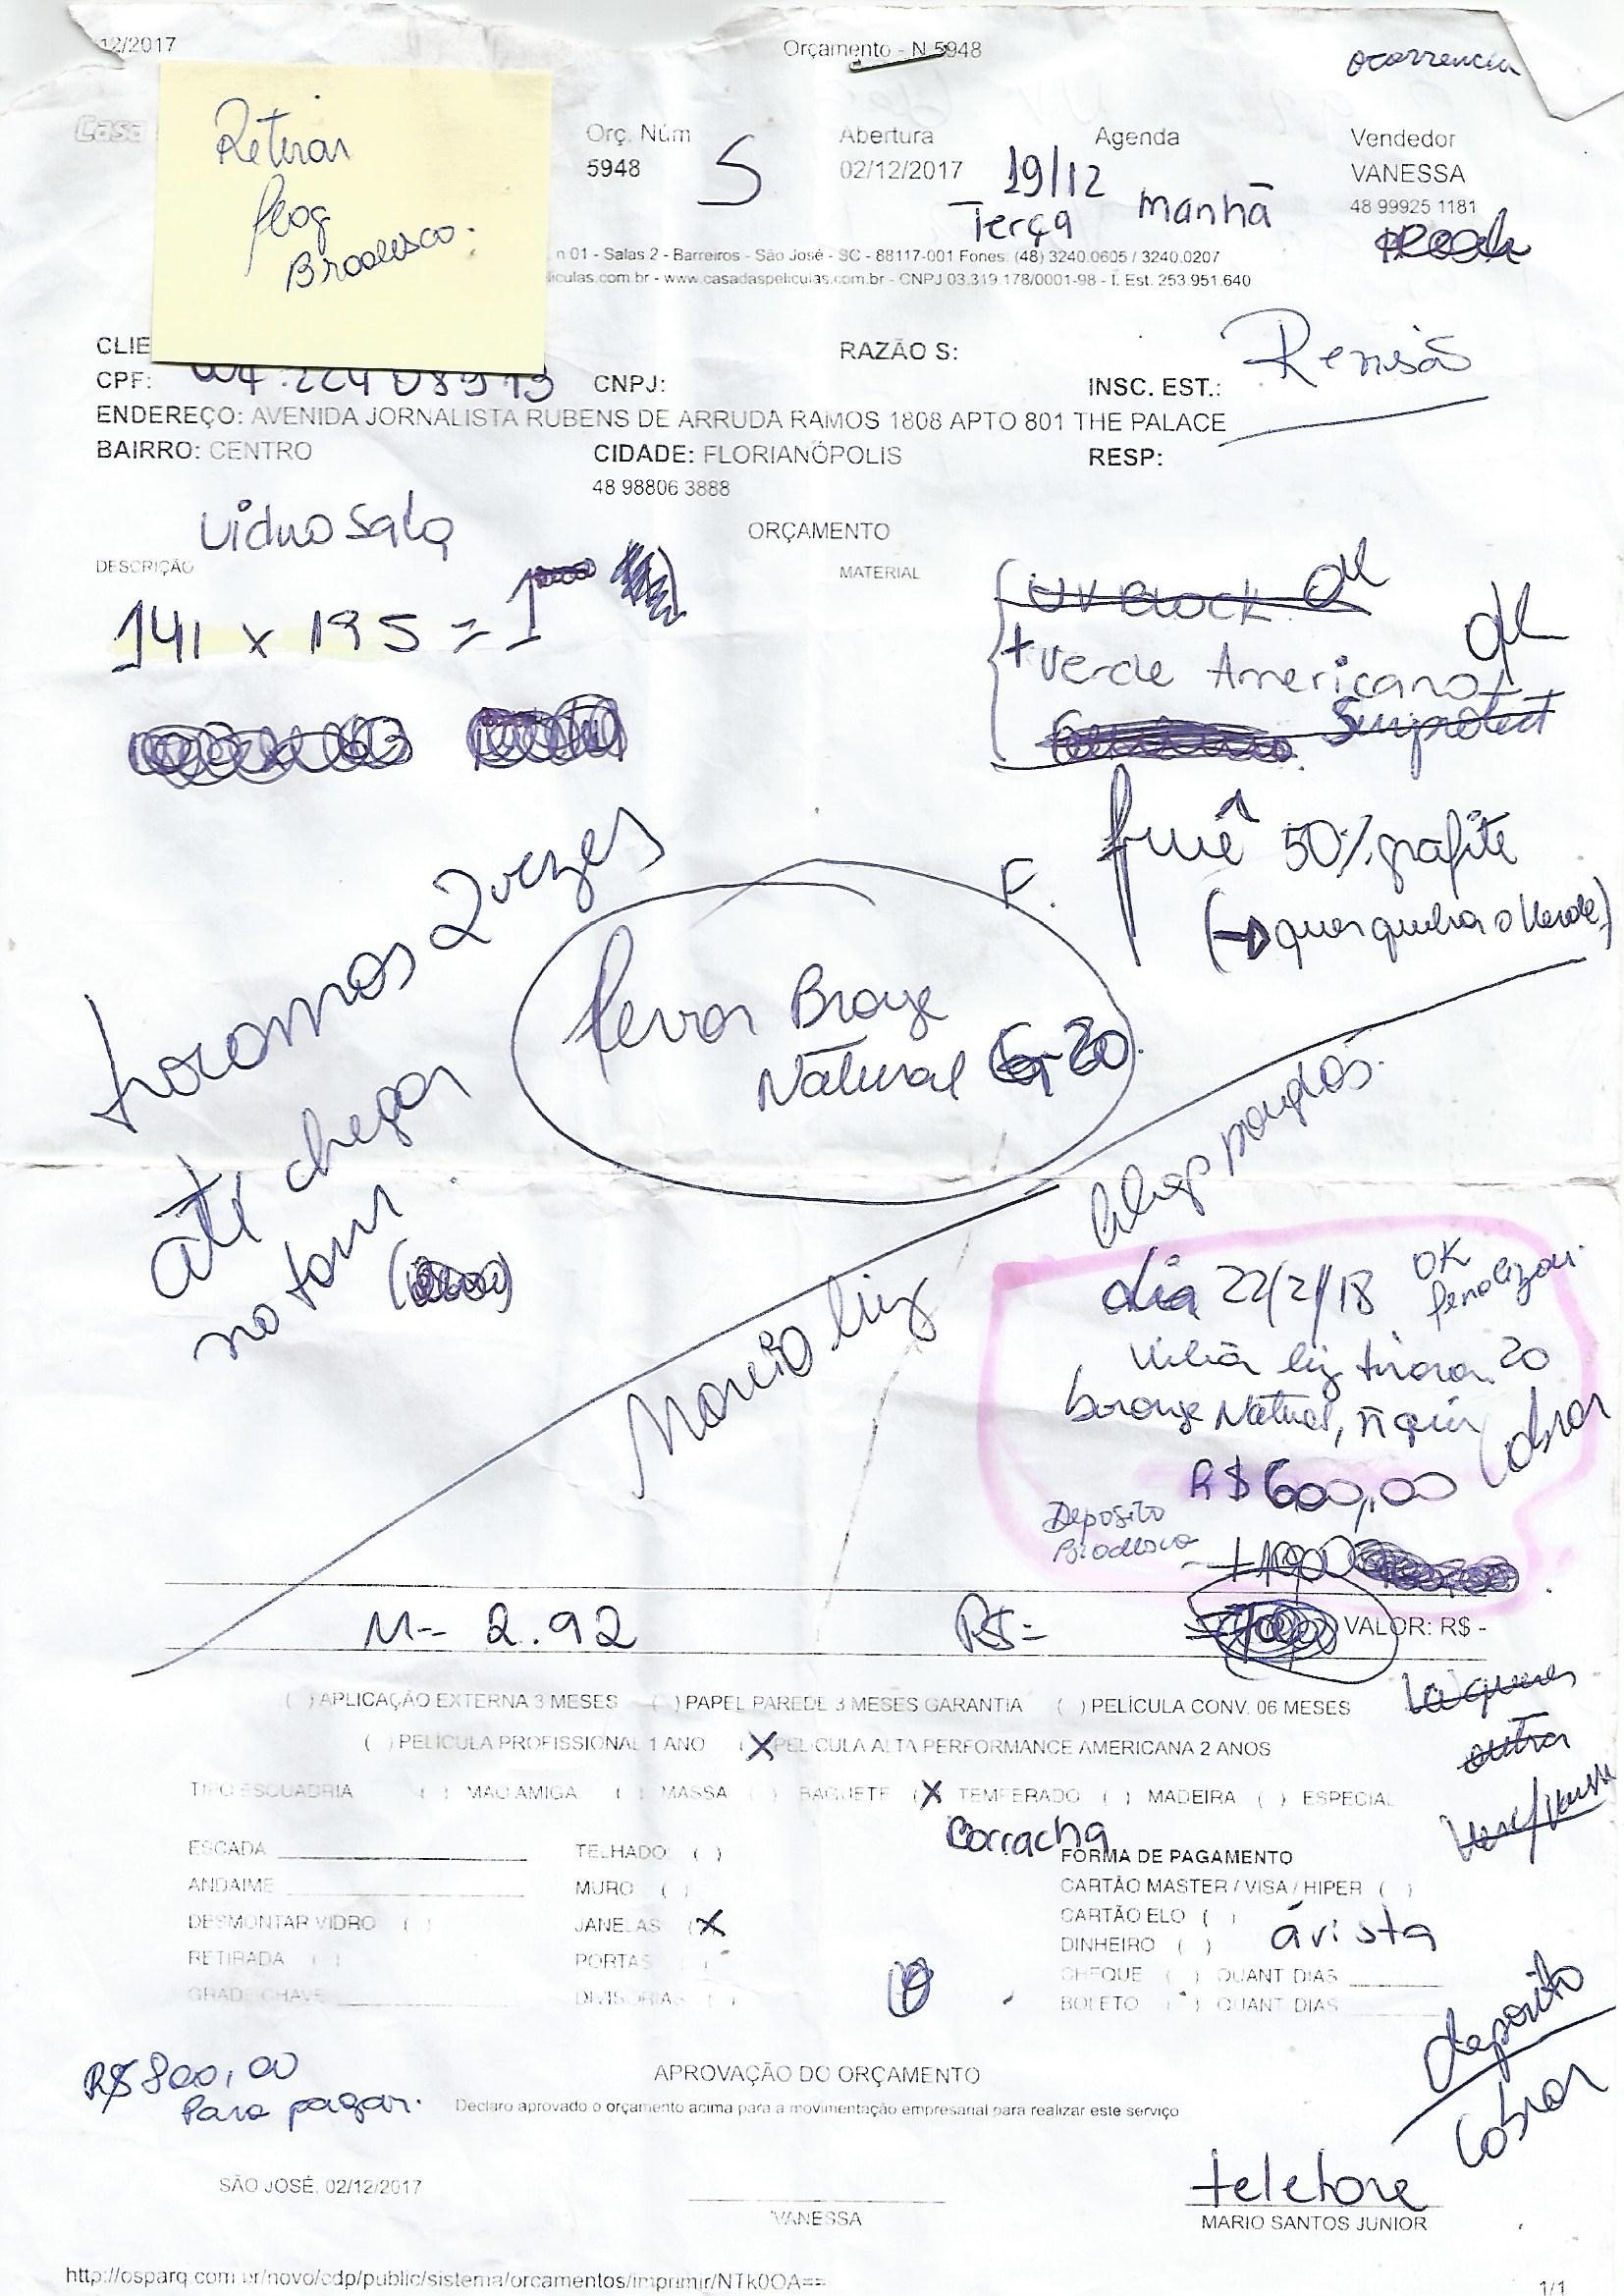 12/2017
Orçamento - N 5948
ocorrencia
Retirar
Pag
Bradesco.
Casa
Orç. Núm
5948
5
Abertura
02/12/2017
Agenda
19/12
Terça manhã
Vendedor
VANESSA
48 99925 1181
n 01 - Salas 2 - Barreiros - São José - SC - 88117-001 Fones: (48) 3240.0605 / 3240.0207
iculas.com.br - www.casadaspeliculas.com.br - CNPJ 03.319.178/0001-98 - I. Est. 253.951.640
CLIE
RAZÃO S:
Revisão
CPF:
CNPJ:
INSC. EST.:
ENDEREÇO: AVENIDA JORNALISTA RUBENS DE ARRUDA RAMOS 1808 APTO 801 THE PALACE
BAIRRO: CENTRO
CIDADE: FLORIANÓPOLIS
RESP:
48 98806 3888
vidro sala
ORÇAMENTO
DESCRIÇÃO
MATERIAL
141 x 195 = 1
UV Block OK
+ Verde Americano OK
fumê 50% grafite
F.
trocamos 2 vezes
até chegar
no tom
levar Bronze
Natural G-20
Marcio luiz
dia 22/2/18 OK
20
bronze Natural, ñ quis
cobrar
R$ 600,00
Deposito
Bradesco
M- 2.92
R$=
VALOR: R$ -
( ) APLICAÇÃO EXTERNA 3 MESES ( ) PAPEL PAREDE 3 MESES GARANTIA ( ) PELÍCULA CONV. 06 MESES
( ) PELICULA PROFISSIONAL 1 ANO (X) PELICULA ALTA PERFORMANCE AMERICANA 2 ANOS
outra
TIPO ESQUADRIA ( ) MAO AMIGA ( ) MASSA ( ) BAGUETE (X TEMPERADO ( ) MADEIRA ( ) ESPECIAL
borracha
ESCADA
TELHADO ( )
FORMA DE PAGAMENTO
ANDAIME
MURO ( )
CARTÃO MASTER / VISA / HIPER ( )
DESMONTAR VIDRO ( )
JANELAS (X
CARTÃO ELO ( )
ávista
RETIRADA ( )
PORTAS ( )
DINHEIRO ( )
GRADE CHAVE
DIVISORIAS ( )
CHEQUE ( ) QUANT DIAS
BOLETO ( ) QUANT DIAS
deposito
cobrar
R$ 800,00
Para pagar.
APROVAÇÃO DO ORÇAMENTO
Declaro aprovado o orçamento acima para a movimentação empresarial para realizar este serviço
SÃO JOSÉ, 02/12/2017
VANESSA
telefone
MARIO SANTOS JUNIOR
http://osparq.com.br/novo/cdp/public/sistema/orcamentos/imprimir/NTk0OA==
1/1